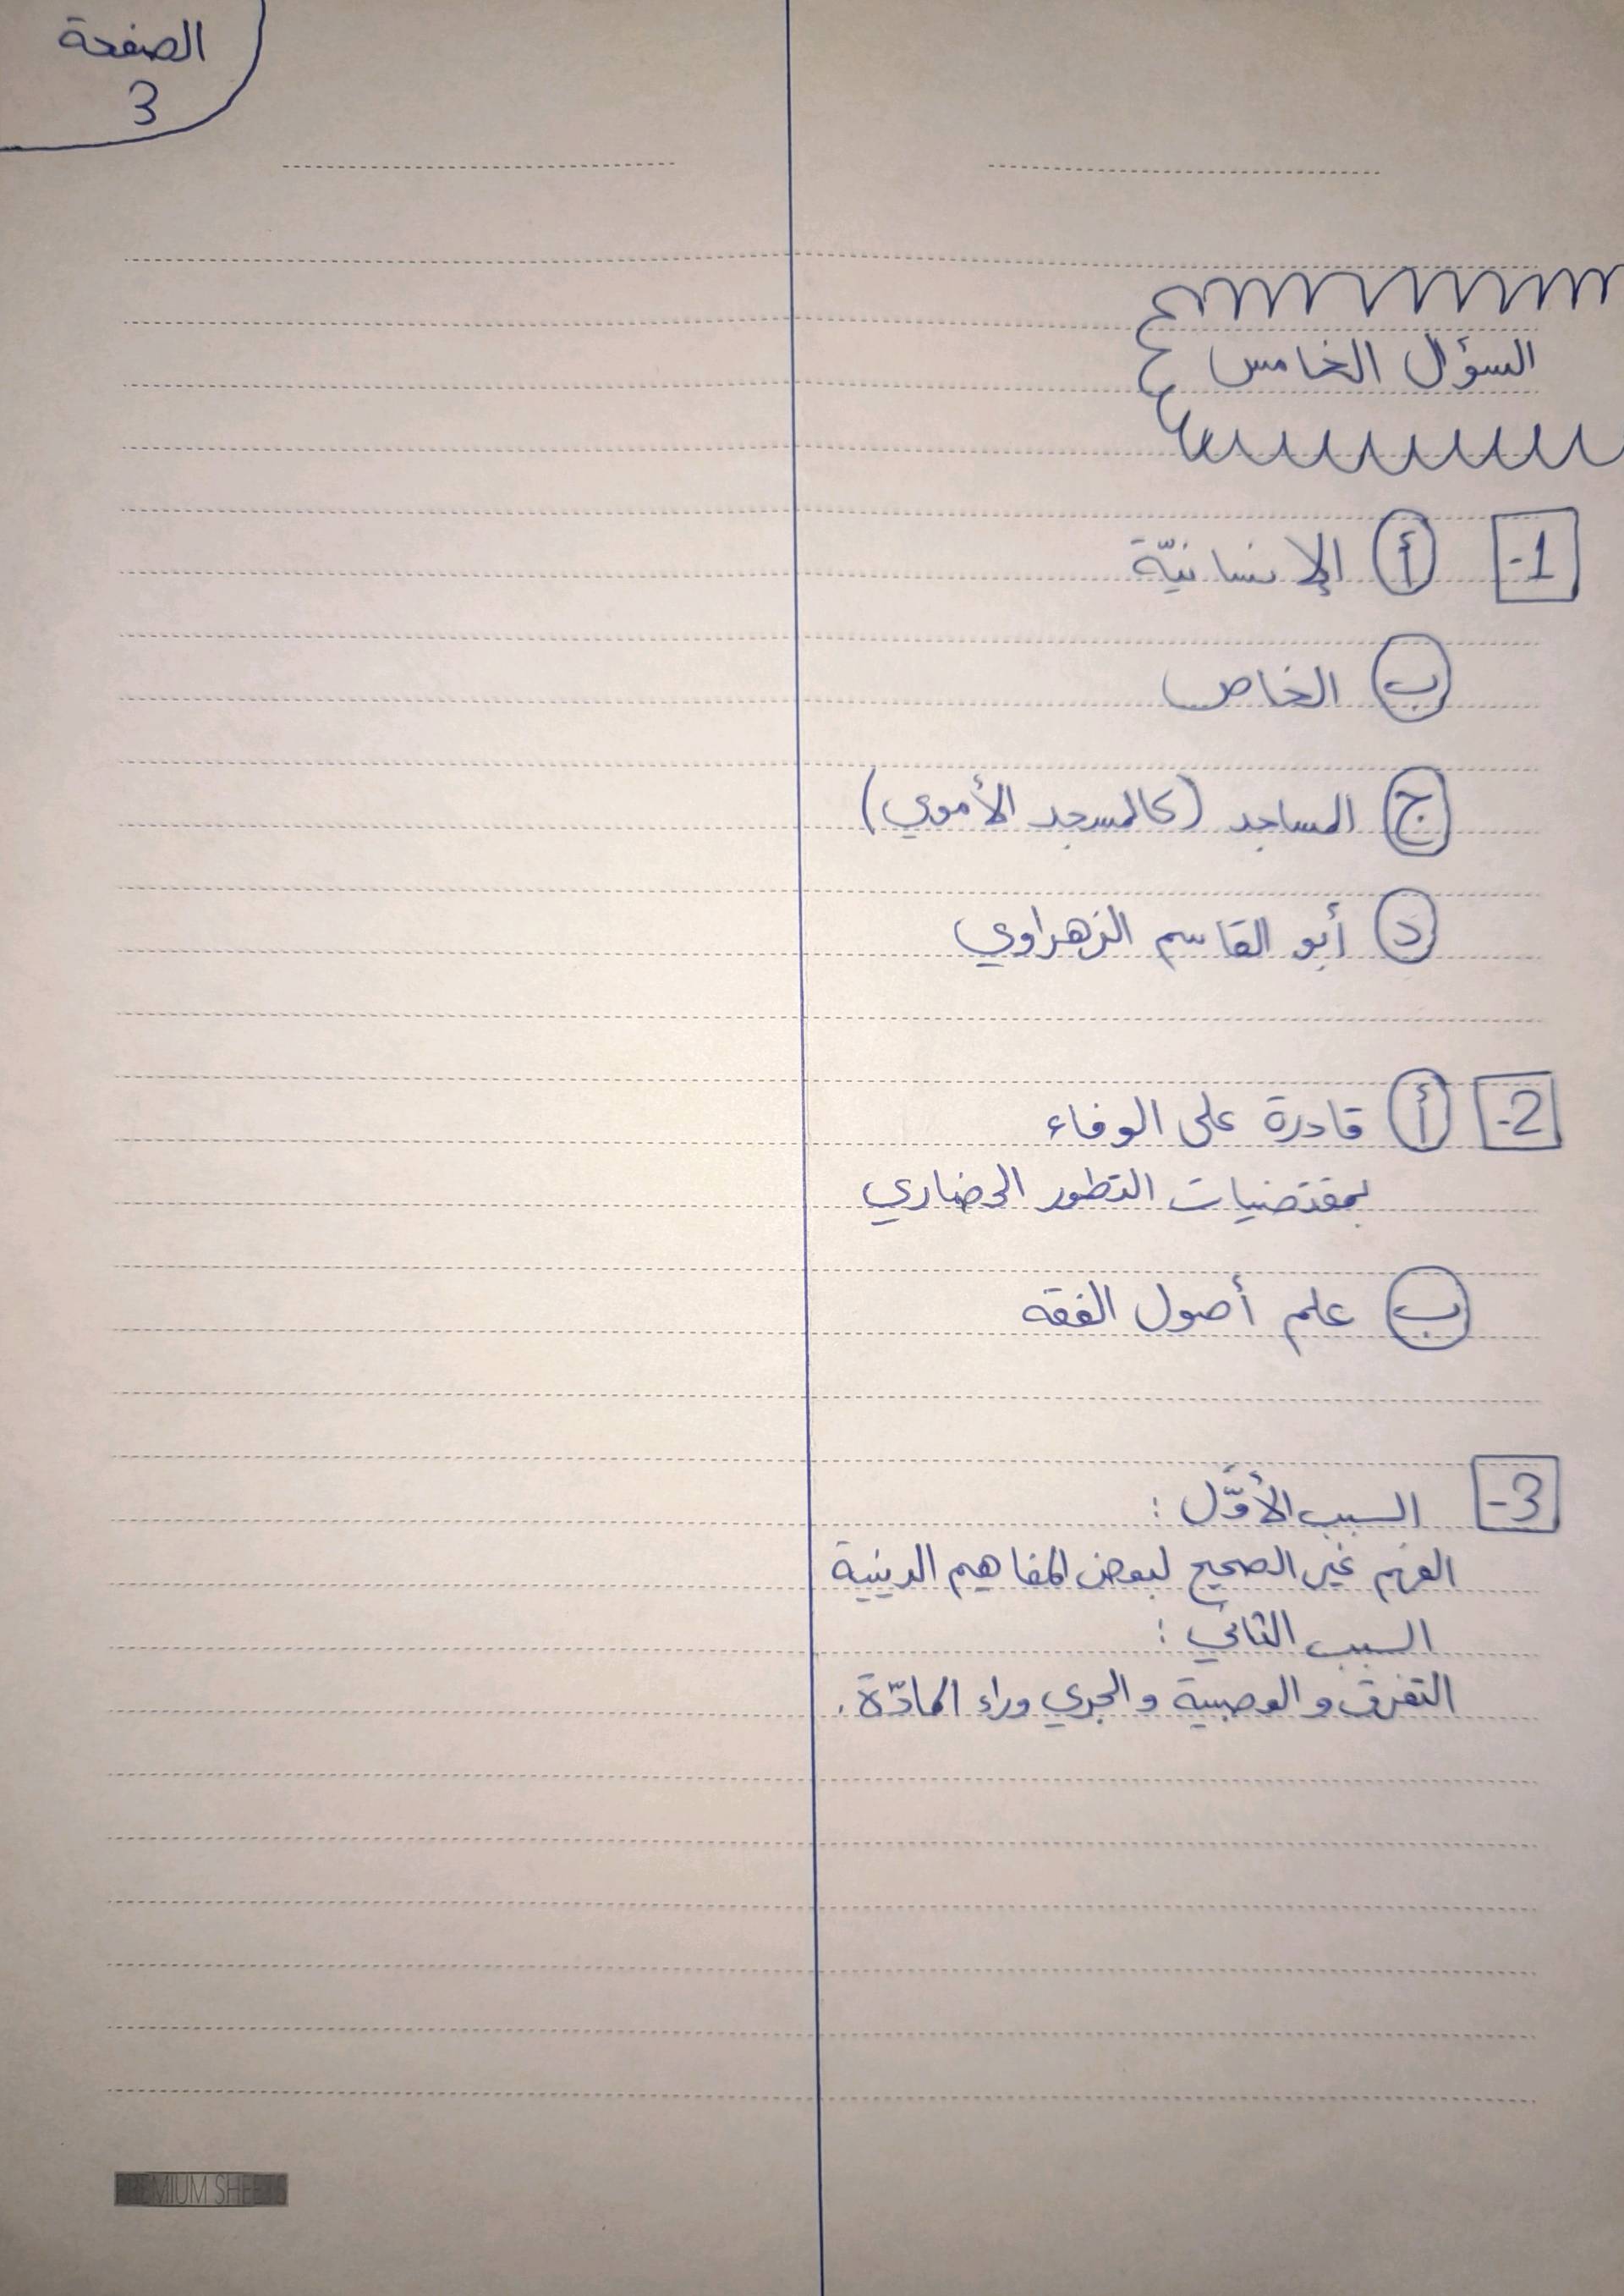 الصفحة
3
السؤال الخامس
1- أ الإنسانيّة
ب الخاص
ج المساجد (كالمسجد الأموي)
د أبو القاسم الزهراوي
2- أ قادرة على الوفاء
بمقتضيات التطور الحضاري
ب علم أصول الفقه
3- السبب الأوّل :
الفهم غير الصحيح لبعض المفاهيم الدينية
السبب الثاني :
التفرق و العصبية و الجري وراء المادّة .
PREMIUM SHEETS